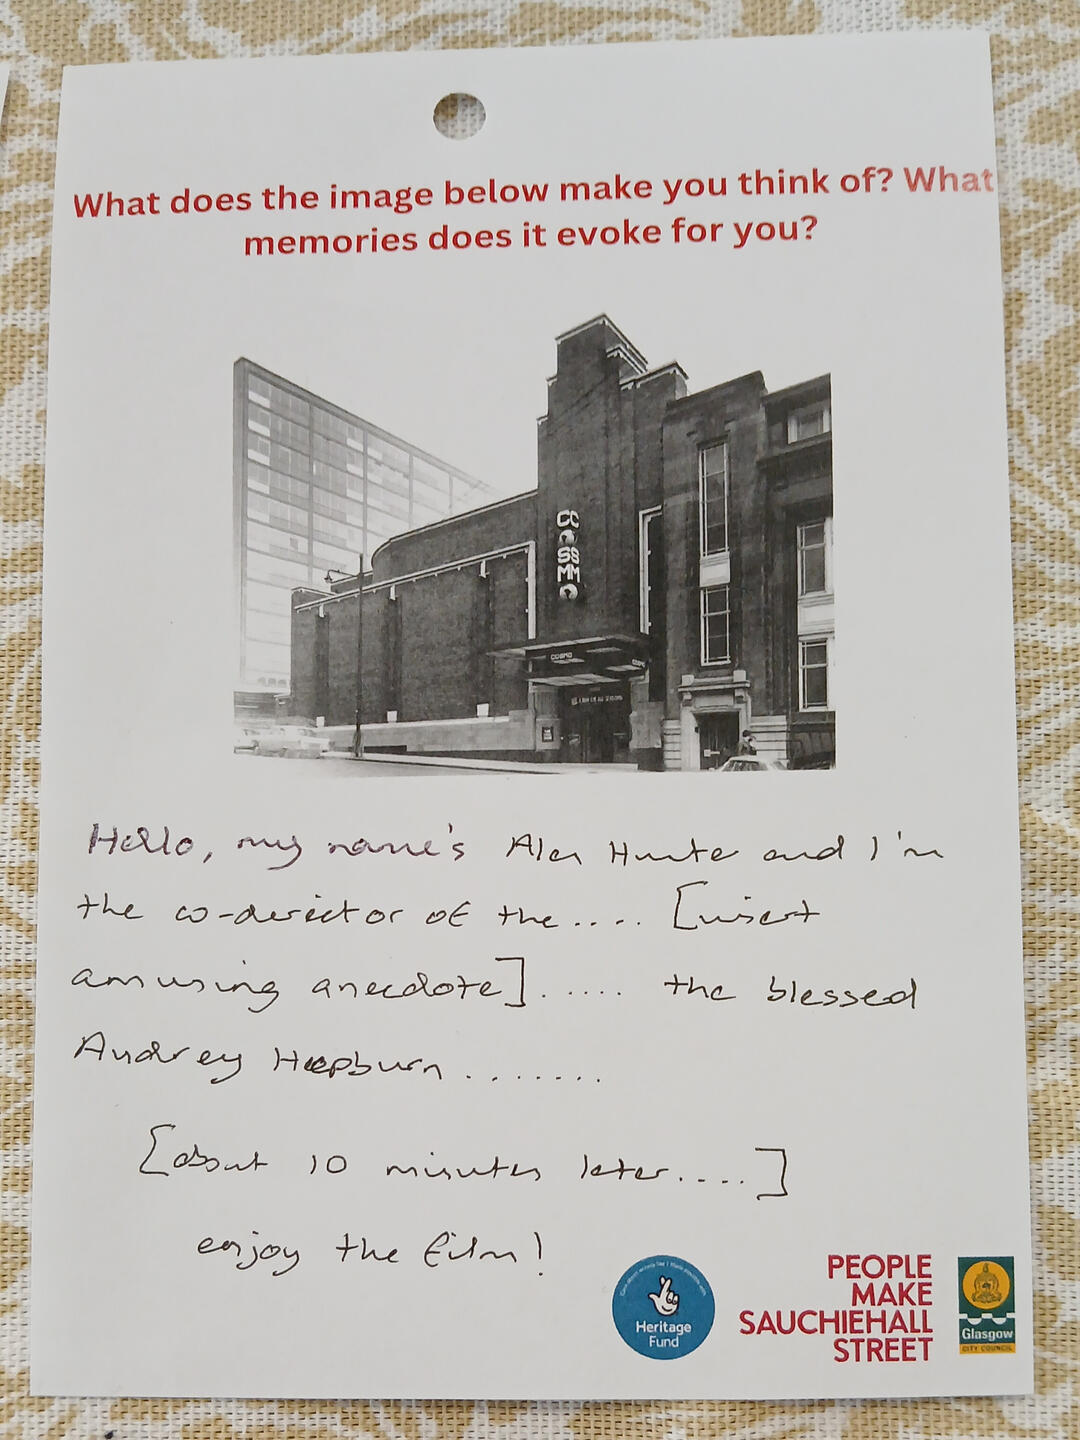 What does the image below make you think of? What
memories does it evoke for you?
CC
SS
MM
COSMO
Hello, my name's Alan Hunter and I'm
the co-director of the.... [insert
amusing anecdote]...... the blessed
Audrey Hepburn.......
[about 10 minutes later....]
enjoy the film!
Heritage
Fund
PEOPLE
MAKE
SAUCHIEHALL
STREET
Glasgow
CITY COUNCIL